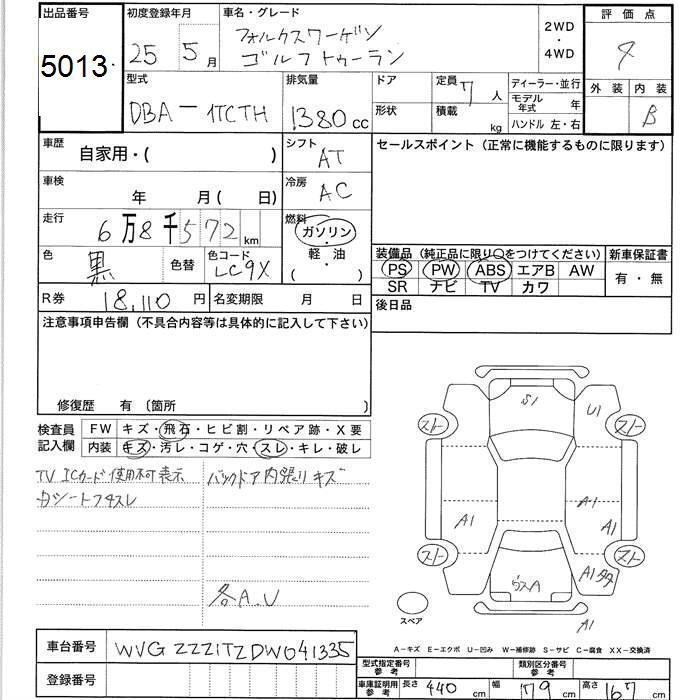 出品番号 初度登録年月 車名・グレード 2WD・4WD 評価点
5013 25 5月 フォルクスワーゲン ゴルフトゥーラン 4
外装 内装
B
型式 排気量 ドア 定員 ディーラー・並行
DBA-1TCTH 1380cc 7人 モデル年式 年
形状 積載 kg ハンドル 左・右
車歴 自家用・( ) シフト AT セールスポイント(正常に機能するものに限ります)
車検 年 月( 日) 冷房 AC
走行 6万8千572km 燃料 ガソリン・軽油 ( )
色 黒 色替 色コード LC9X
装備品(純正品に限り○をつけてください) 新車保証書
PS PW ABS エアB AW 有・無
SR ナビ TV カワ
R券 18,110円 名変期限 月 日 後日品
注意事項申告欄(不具合内容等は具体的に記入して下さい)
修復歴 有(箇所 )
検査員記入欄 FW キズ・飛石・ヒビ割・リペア跡・X要
内装 キズ・汚レ・コゲ・穴・スレ・キレ・破レ
TV ICカード使用不可表示 バックドア内張りキズ
各A.U
S1 U1
スト スト
A1 A1 A1
スト スト
A1
A1
スペア
A-キズ E-エクボ U-凹み W-補修跡 S-サビ C-腐食 XX-交換済
車台番号 WVGZZZ1TZDW041335
登録番号
型式指定番号 参考 類別区分番号 参考
車庫証明用 参考 長さ 440cm 幅 179cm 高さ 167cm